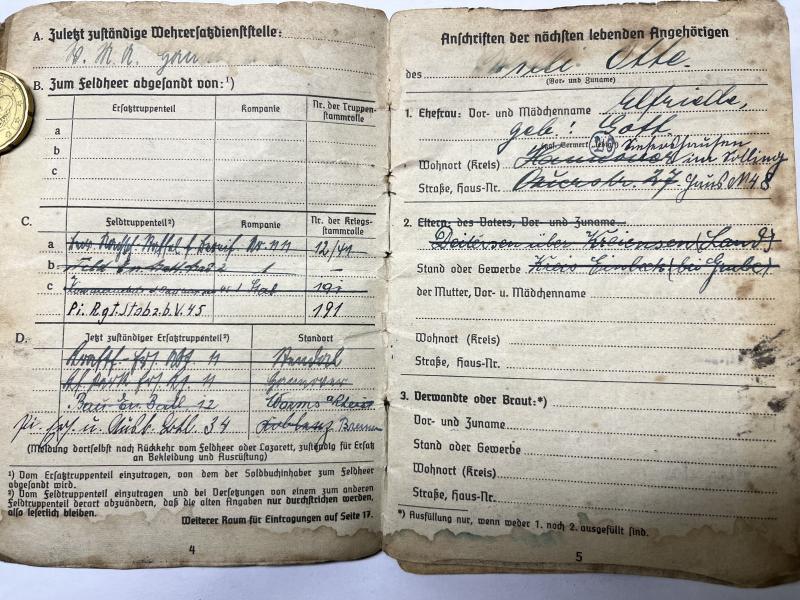 A. Zuletzt zuständige Wehrersatzdienststelle:
W. M. A.
B. Zum Feldheer abgesandt von:¹)
Ersatztruppenteil Kompanie Nr. der Truppenstammrolle
a
b
c
C. Feldtruppenteil²) Kompanie Nr. der Kriegsstammrolle
a 12/41
b 1 –
c 191
Pi. Rgt. Stab z.b.V. 45 191
D. Jetzt zuständiger Ersatztruppenteil²) Standort
Kraftf. Ers. Abt. 11 Stendal
11 Hannover
Bau Ers. Batl. 12 Worms a/Rhein
Pi. Ers. u. Ausb. Batl. 34 Koblenz
(Meldung dortselbst nach Rückkehr vom Feldheer oder Lazarett, zuständig für Ersatz
an Bekleidung und Ausrüstung)
¹) Vom Ersatztruppenteil einzutragen, von dem der Soldbuchinhaber zum Feldheer
abgesandt wird.
²) Vom Feldtruppenteil einzutragen und bei Versetzungen von einem zum anderen
Feldtruppenteil derart abzuändern, daß die alten Angaben nur durchstrichen werden,
also leserlich bleiben.
Weiterer Raum für Eintragungen auf Seite 17.
4
Anschriften der nächsten lebenden Angehörigen
des Otte.
(Vor- und Zuname)
1. Ehefrau: Vor- und Mädchenname Elfriede,
geb:
Wohnort (Kreis) Hannover im Solling
Straße, Haus-Nr. 27 Haus N 48
2. Eltern: des Vaters, Vor- und Zuname
Deitersen über Kreiensen (Land)
Stand oder Gewerbe Kreis Einbeck (bei Grube)
der Mutter, Vor- u. Mädchenname
Wohnort (Kreis)
Straße, Haus-Nr.
3. Verwandte oder Braut:*)
Vor- und Zuname
Stand oder Gewerbe
Wohnort (Kreis)
Straße, Haus-Nr.
*) Ausfüllung nur, wenn weder 1. noch 2. ausgefüllt sind.
5